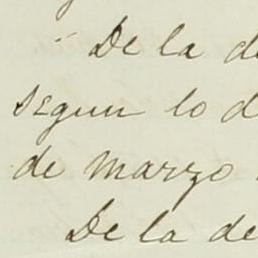 De la de
segun lo d
de marzo
De la de